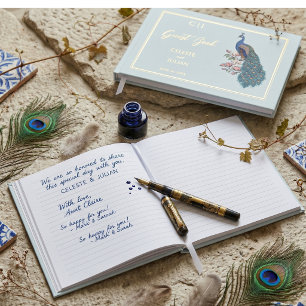 Guest Book
CELESTE
&
JULIAN
We are so honored to share
this special day with you,
CELESTE & JULIAN
With love,
Aunt Claire
So happy for you!
Mark & Sarah
So happy for you!
Mark & Sarah